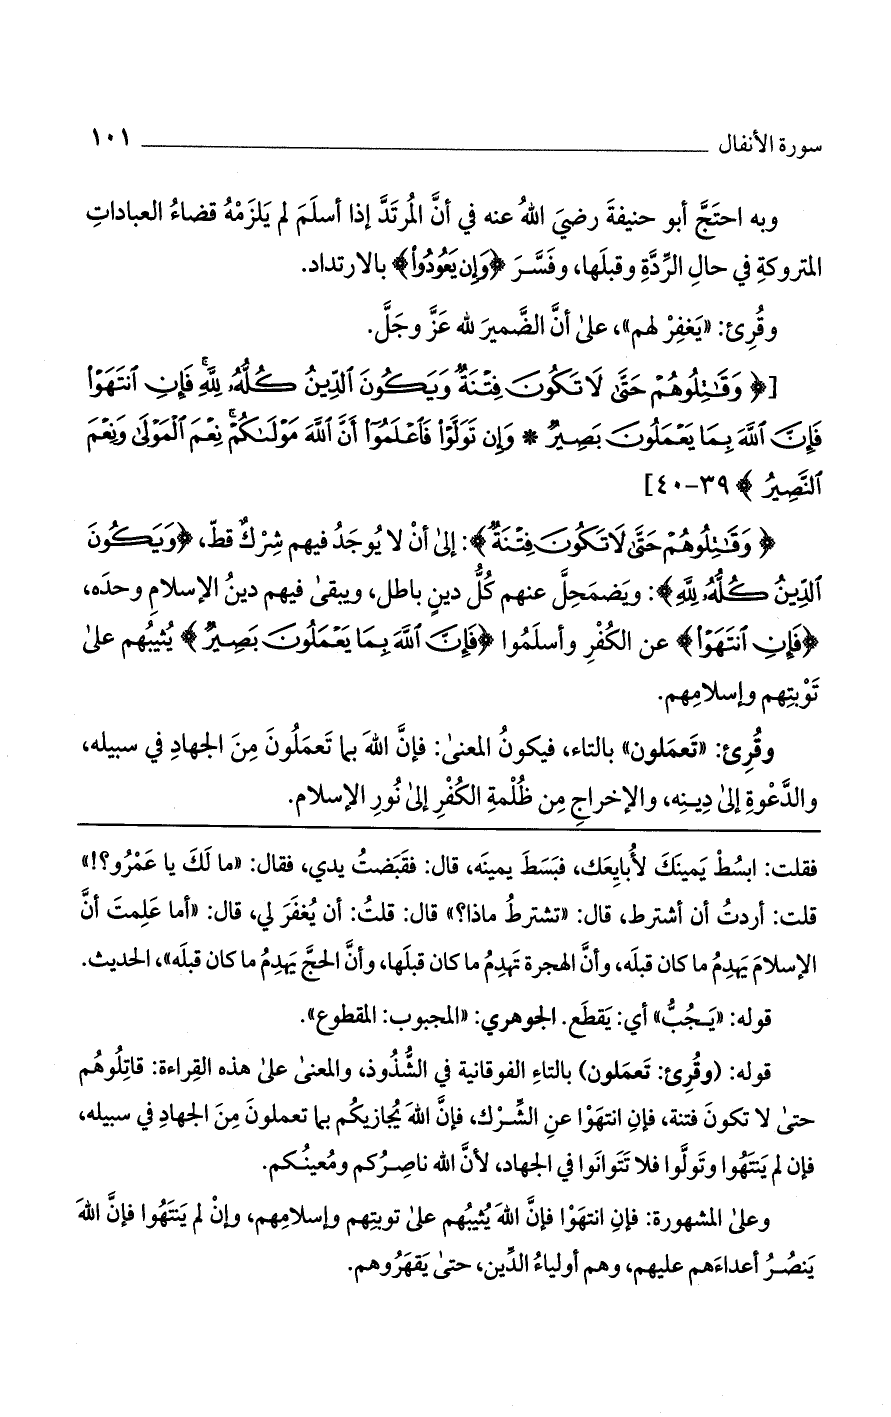 سورة الأنفال ١٠١
وبه احتَجَّ أبو حنيفةَ رضيَ اللهُ عنه في أنَّ المُرتَدَّ إذا أسلَمَ لم يَلزَمْهُ قضاءُ العباداتِ
المتروكةِ في حالِ الرِّدَّةِ وقبلَها، وفَسَّرَ ﴿وَإِن يَعُودُوا۟﴾ بالارتداد.
وقُرِئ: «يَغفِرْ لهم»، علىٰ أنَّ الضَّميرَ لله عَزَّ وجَلَّ.
[﴿وَقَٰتِلُوهُمْ حَتَّىٰ لَا تَكُونَ فِتْنَةٌ وَيَكُونَ ٱلدِّينُ كُلُّهُۥ لِلَّهِ ۚ فَإِنِ ٱنتَهَوْا۟
فَإِنَّ ٱللَّهَ بِمَا يَعْمَلُونَ بَصِيرٌ * وَإِن تَوَلَّوْا۟ فَٱعْلَمُوٓا۟ أَنَّ ٱللَّهَ مَوْلَىٰكُمْ ۚ نِعْمَ ٱلْمَوْلَىٰ وَنِعْمَ
ٱلنَّصِيرُ﴾ ٣٩-٤٠]
﴿وَقَٰتِلُوهُمْ حَتَّىٰ لَا تَكُونَ فِتْنَةٌ﴾: إلىٰ أنْ لا يُوجَدُ فيهم شِرْكٌ قطّ، ﴿وَيَكُونَ
ٱلدِّينُ كُلُّهُۥ لِلَّهِ﴾: ويَضمَحِلَّ عنهم كُلُّ دينٍ باطل، ويبقىٰ فيهم دينُ الإسلامِ وحدَه،
﴿فَإِنِ ٱنتَهَوْا۟﴾ عن الكُفْرِ وأسلَمُوا ﴿فَإِنَّ ٱللَّهَ بِمَا يَعْمَلُونَ بَصِيرٌ﴾ يُثيبُهم علىٰ
تَوْبتِهم وإسلامِهم.
وقُرِئ: «تَعمَلون» بالتاء، فيكونُ المعنىٰ: فإنَّ اللهَ بما تَعمَلُونَ مِنَ الجهادِ في سبيله،
والدَّعْوةِ إلىٰ دِينِه، والإخراجِ مِن ظُلْمةِ الكُفْرِ إلىٰ نُورِ الإسلام.
فقلت: ابسُطْ يَمينَكَ لأُبايِعَك، فبَسَطَ يمينَه، قال: فقَبَضتُ يدي، فقال: «ما لَكَ يا عَمْرُو؟!»
قلت: أردتُ أن أشترط، قال: «تشترطُ ماذا؟» قال: قلتُ: أن يُغفَرَ لي، قال: «أما عَلِمتَ أنَّ
الإسلامَ يَهدِمُ ما كان قبلَه، وأنَّ الهجرةَ تَهدِمُ ما كان قبلَها، وأنَّ الحجَّ يَهدِمُ ما كان قبلَه»، الحديث.
قوله: «يَـجُبُّ» أي: يَقطَع. الجوهري: «المجبوب: المقطوع».
قوله: (وقُرِئ: تَعمَلون) بالتاءِ الفوقانية في الشُّذُوذ، والمعنىٰ علىٰ هذه القِراءة: قاتِلُوهُم
حتىٰ لا تكونَ فتنة، فإنِ انتهَوْا عنِ الشِّرْك، فإنَّ اللهَ يُجازيكُم بما تعملونَ مِنَ الجهادِ في سبيله،
فإن لم يَنتَهُوا وتَولَّوا فلا تَتَوانَوا في الجهاد، لأنَّ الله ناصِرُكم ومُعينُكم.
وعلىٰ المشهورة: فإنِ انتهَوْا فإنَّ اللهَ يُثيبُهم علىٰ توبتِهم وإسلامِهم، وإنْ لم يَنتَهُوا فإنَّ اللهَ
يَنصُرُ أعداءَهم عليهم، وهم أولياءُ الدِّين، حتىٰ يَقهَرُوهم.